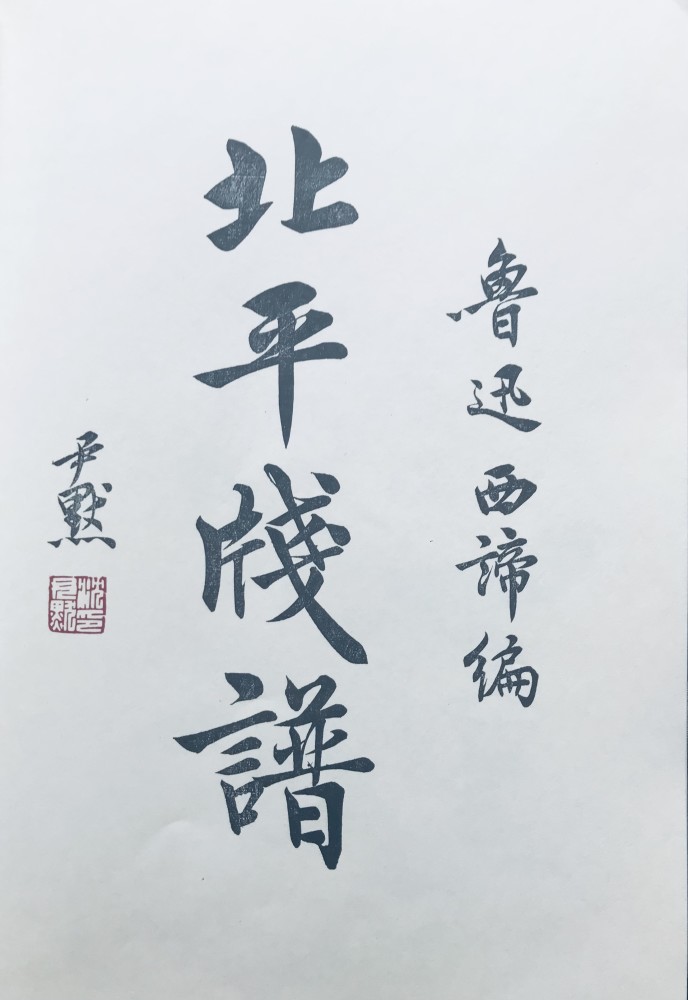 魯迅西諦編
北平牋譜
尹默
沈尹默印